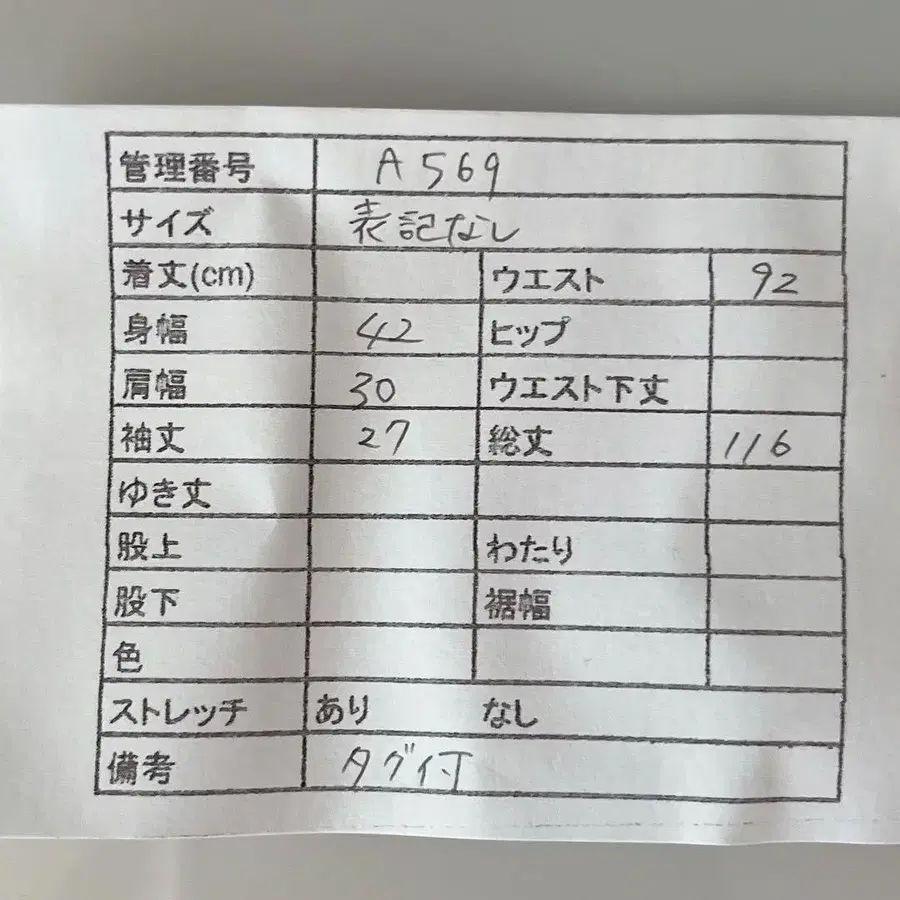 管理番号 A569
サイズ 表記なし
着丈(cm) ウエスト 92
身幅 42 ヒップ
肩幅 30 ウエスト下丈
袖丈 27 総丈 116
ゆき丈
股上 わたり
股下 裾幅
色
ストレッチ あり なし
備考 タグ付